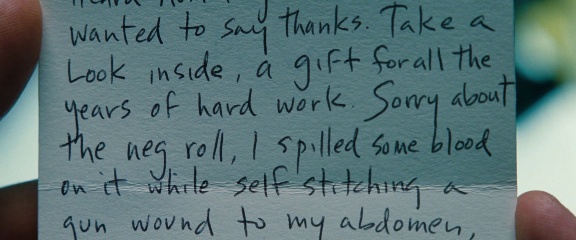 wanted to say thanks. Take a
Look inside, a gift for all the
years of hard work. Sorry about
the neg roll, I spilled some blood
on it while self stitching a
gun wound to my abdomen,